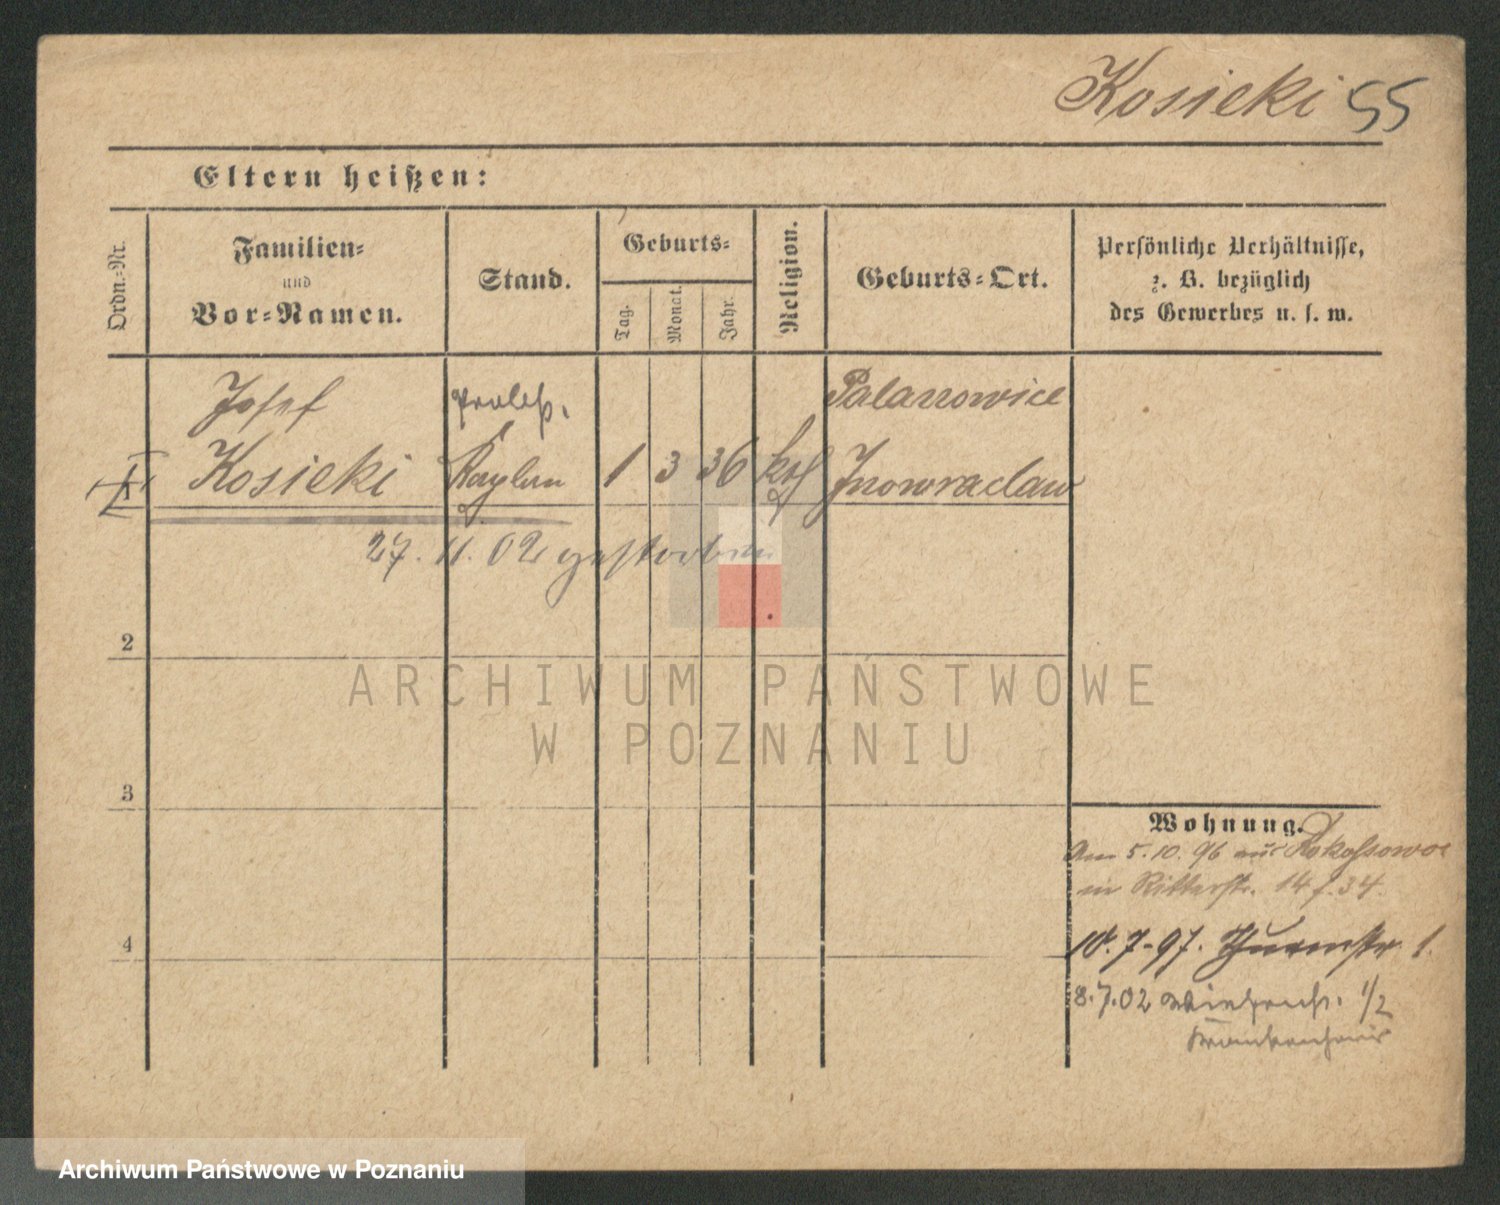 Kosicki 55
Eltern heißen:
Ordn.-Nr.
Familien-
und
Vor-Namen.
Stand.
Geburts-
Tag.
Monat.
Jahr.
Religion.
Geburts-Ort.
Persönliche Verhältnisse,
z. B. bezüglich
des Gewerbes u. s. w.
Josef
Kosicki
Kaplan
1 3 36 kth
Palanowice
Inowraclaw
27. 11. 02 gestorben
2
3
4
Wohnung.
Am 5. 10. 96 aus Rokossowo
in Ritterstr. 14 f. 34.
10. 7. 97. Thurmstr 1.
8. 7. 02 1/2
Krankenhaus
ARCHIWUM PAŃSTWOWE
W POZNANIU
Archiwum Państwowe w Poznaniu